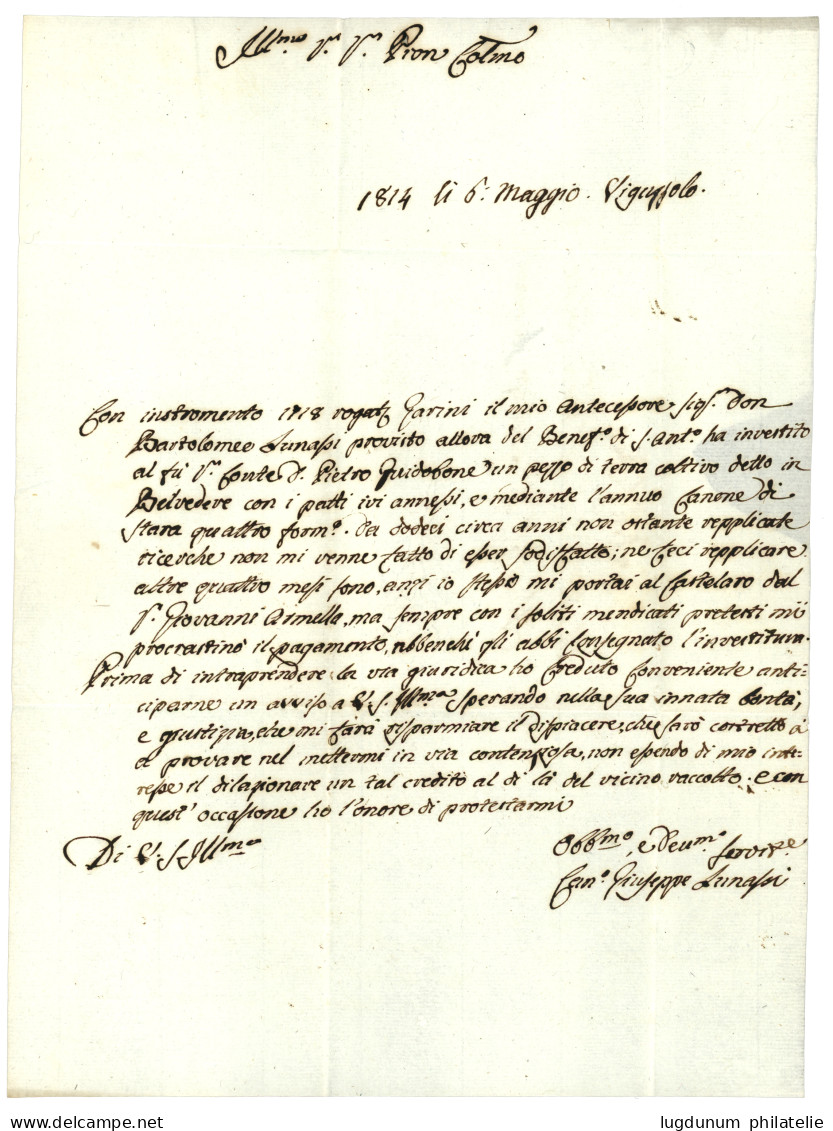 Ill.mo S.r S.r Pron Col.mo
1814 li 6: Maggio. Viguzzolo.
Con instromento 1718 rogat. Garini il mio Antecessore sig.r Don
Bartolomeo Lunassi provisto allora del Benef.o di S. Ant.o ha investito
al fù S.r Conte D. Pietro Guidobone un pezzo di terra coltivo detto in
Belvedere con i patti ivi annessi, e mediante l'annuo Canone di
stara quattro form.o. Da dodeci circa anni non ostante repplicate
ricerche non mi venne fatto di esser sodisfatto; ne feci repplicare
altre quattro mesi sono, anzi io stesso mi portai al Castelaro dal
S.r Giovanni Armella, ma sempre con i soliti mendicati pretesti mi
procrastinò il pagamento, ebbenchì gli abbi Consegnato l'investitura.
Prima di intraprendere la via giuridica ho Creduto Conveniente anti-
ciparne un avviso a V.S. Ill.ma sperando nella sua innata bontà,
e giustizia, che mi farà risparmiare il dispiacere, che sarò costretto a
a provare nel mettermi in via contenziosa, non essendo di mio inte-
resse il dilazionare un tal credito al di là del vicino raccolto. e con
quest' occasione ho l'onore di protestarmi
Di V.S. Ill.ma
Obb.mo, e Dev.mo Servit.e
Can.o Giuseppe Lunassi
lugdunum philatelie